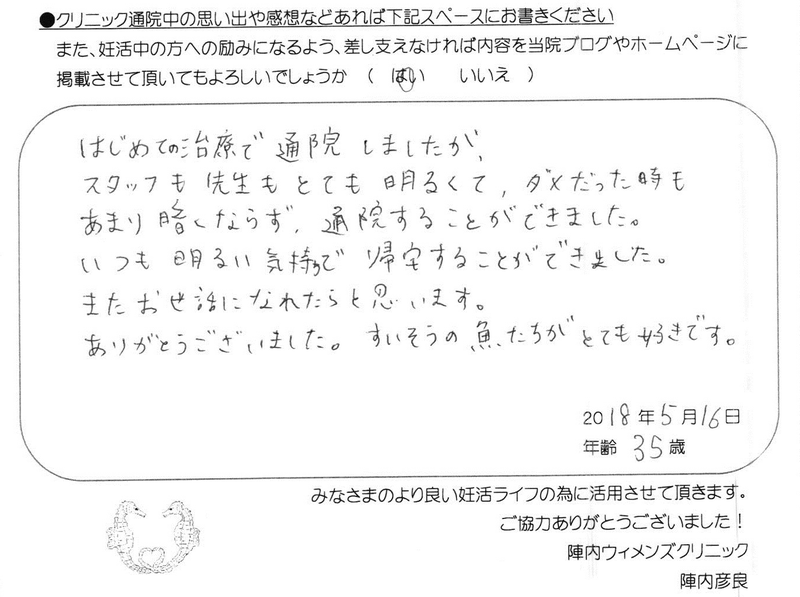 ●クリニック通院中の思い出や感想などあれば下記スペースにお書きください
また、妊活中の方への励みになるよう、差し支えなければ内容を当院ブログやホームページに
掲載させて頂いてもよろしいでしょうか （ はい いいえ ）
はじめての治療で通院しましたが、
スタッフも先生もとても明るくて、ダメだった時も
あまり暗くならず、通院することができました。
いつも明るい気持で帰宅することができました。
またお世話になれたらと思います。
ありがとうございました。すいそうの魚たちがとても好きです。
2018年5月16日
年齢 35歳
みなさまのより良い妊活ライフの為に活用させて頂きます。
ご協力ありがとうございました！
陣内ウィメンズクリニック
陣内彦良